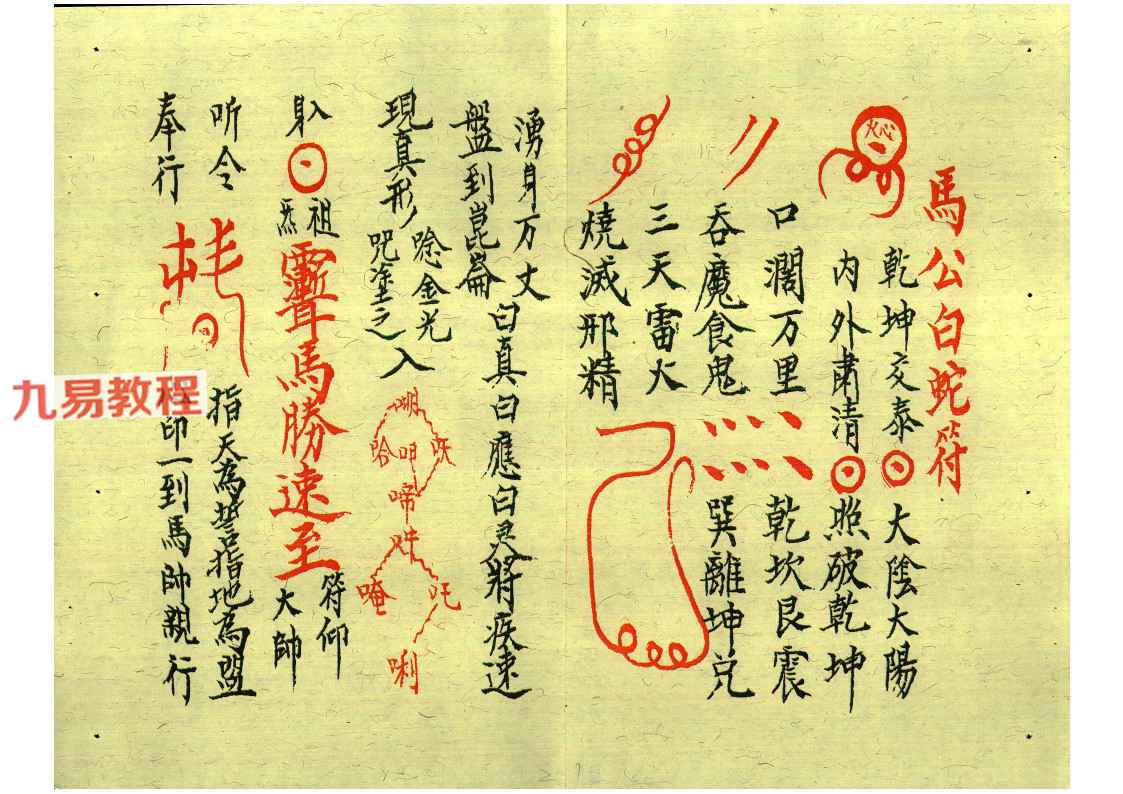 馬公白蛇符
乾坤交泰
大陰大陽
内外肅清
照破乾坤
口濶万里
乾坎艮震
吞魔食鬼
巽離坤兑
三天雷火
燒滅邪精
湧身万丈
盤到崑崙
白真白應白灵將疾速
現真形
唸金光
咒塗之
入
唵
吽
吒
唎
祖
馬勝速至
符仰
大帥
听令
指天為誓指地為盟
奉行
印一到馬帥親行
九易教程